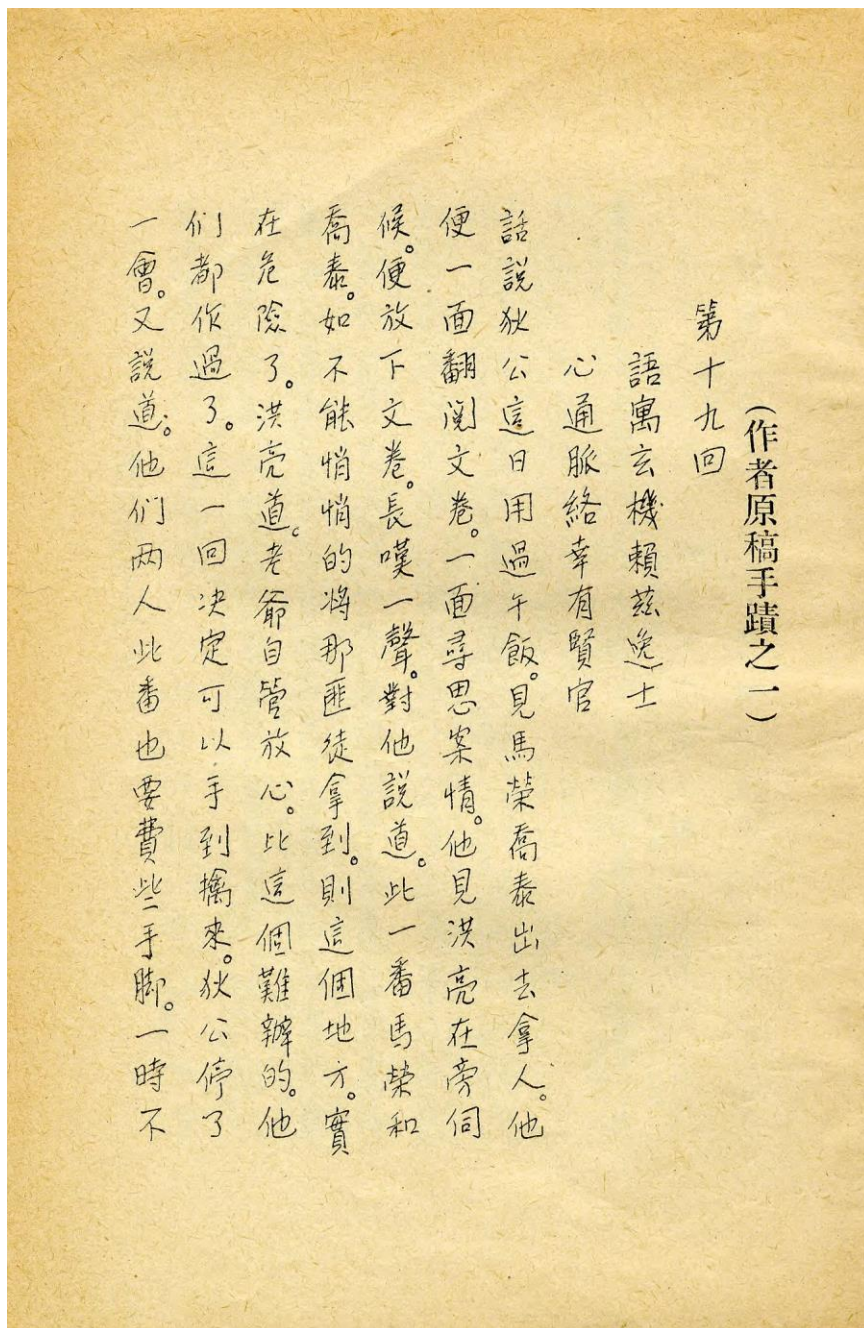 (作者原稿手蹟之一)
第十九回
語寓玄機賴茲逸士
心通脈絡幸有賢官
話說狄公這日用過午飯。見馬榮喬泰出去拿人。他
便一面翻閱文卷。一面尋思案情。他見洪亮在旁伺
候。便放下文卷。長嘆一聲。對他說道。此一番馬榮和
喬泰。如不能悄悄的将那匪徒拿到。則這個地方。實
在危險了。洪亮道。老爺自管放心。比這個難辦的。他
们都作過了。這一回决定可以手到擒來。狄公停了
一會。又說道。他们两人此番也要費些手脚。一時不